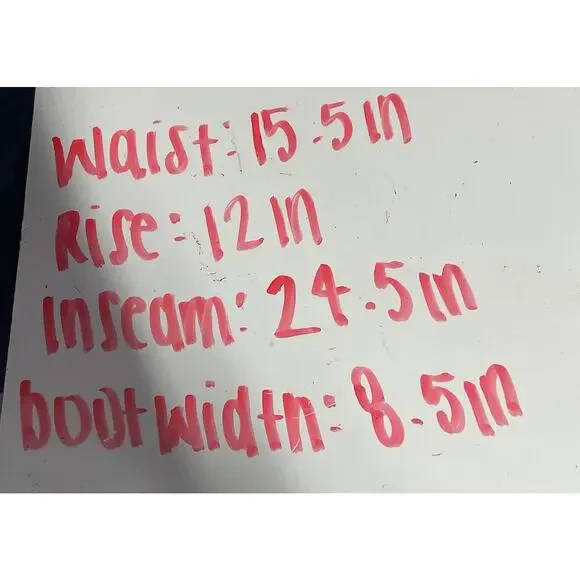 Waist: 15.5 in
Rise: 12 in
Inseam: 24.5 in
boot width: 8.5 in